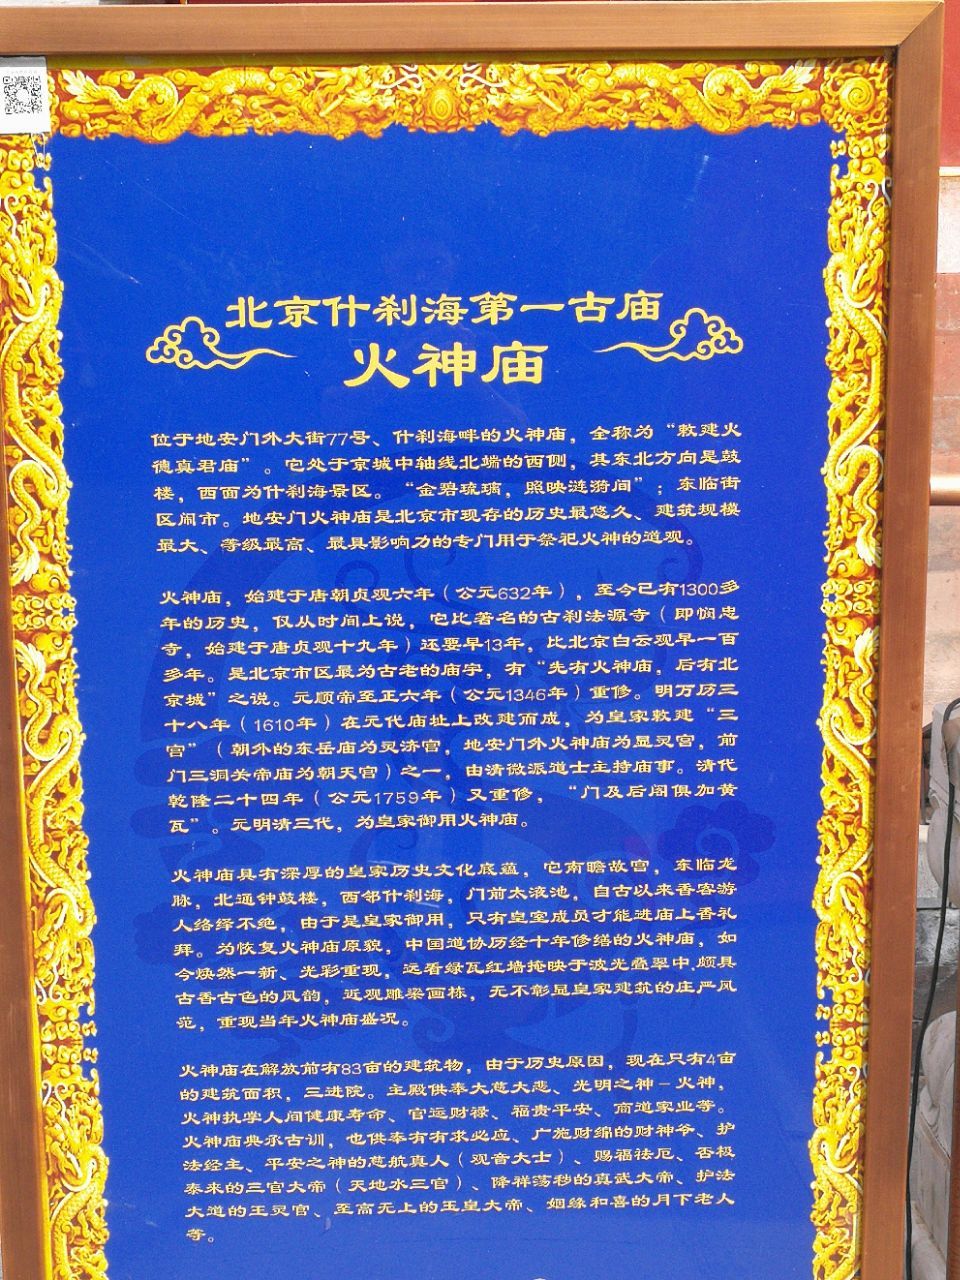 北京什刹海第一古庙
火神庙
位于地安门外大街77号、什刹海畔的火神庙，全称为“敕建火
德真君庙”。它处于京城中轴线北端的西侧，其东北方向是鼓
楼，西面为什刹海景区。“金碧琉璃，照映涟漪间”；东临街
区闹市。地安门火神庙是北京市现存的历史最悠久、建筑规模
最大、等级最高、最具影响力的专门用于祭祀火神的道观。
火神庙，始建于唐朝贞观六年（公元632年），至今已有1300多
年的历史，仅从时间上说，它比著名的古刹法源寺（即悯忠
寺，始建于唐贞观十九年）还要早13年，比北京白云观早一百
多年。是北京市区最为古老的庙宇，有“先有火神庙，后有北
京城”之说。元顺帝至正六年（公元1346年）重修。明万历三
十八年（1610年）在元代庙址上改建而成，为皇家敕建“三
宫”（朝外的东岳庙为灵济宫，地安门外火神庙为显灵宫，前
门三洞关帝庙为朝天宫）之一，由清微派道士主持庙事。清代
乾隆二十四年（公元1759年）又重修，“门及后阁俱加黄
瓦”。元明清三代，为皇家御用火神庙。
火神庙具有深厚的皇家历史文化底蕴，它南瞻故宫，东临龙
脉，北通钟鼓楼，西邻什刹海，门前太液池，自古以来香客游
人络绎不绝，由于是皇家御用，只有皇室成员才能进庙上香礼
拜。为恢复火神庙原貌，中国道协历经十年修缮的火神庙，如
今焕然一新、光彩重现，远看绿瓦红墙掩映于波光叠翠中,颇具
古香古色的风韵，近观雕梁画栋，无不彰显皇家建筑的庄严风
范，重现当年火神庙盛况。
火神庙在解放前有83亩的建筑物，由于历史原因，现在只有4亩
的建筑面积，三进院。主殿供奉大慈大悲、光明之神－火神，
火神执掌人间健康寿命、官运财禄、福贵平安、商道家业等。
火神庙典承古训，也供奉有有求必应、广施财绵的财神爷、护
法经主、平安之神的慈航真人（观音大士）、赐福祛厄、否极
泰来的三官大帝（天地水三官）、降祥荡秽的真武大帝、护法
大道的王灵官、至高无上的玉皇大帝、姻缘和喜的月下老人
等。